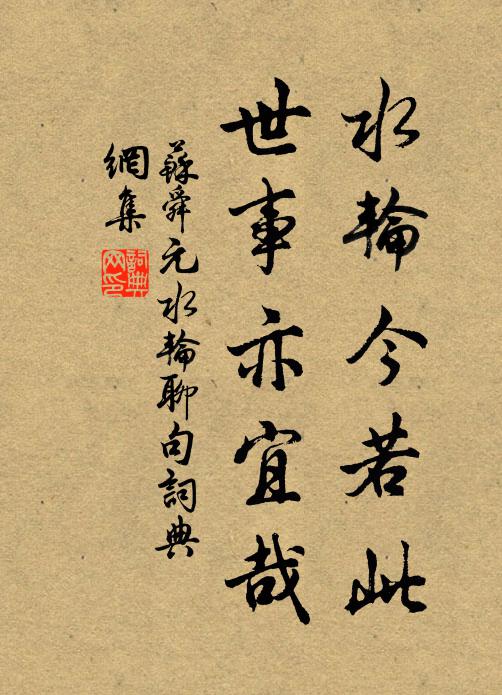 水輪今若此
世事亦宜哉
蘇舜元水輪聊句詞典
網集
詞典
网印